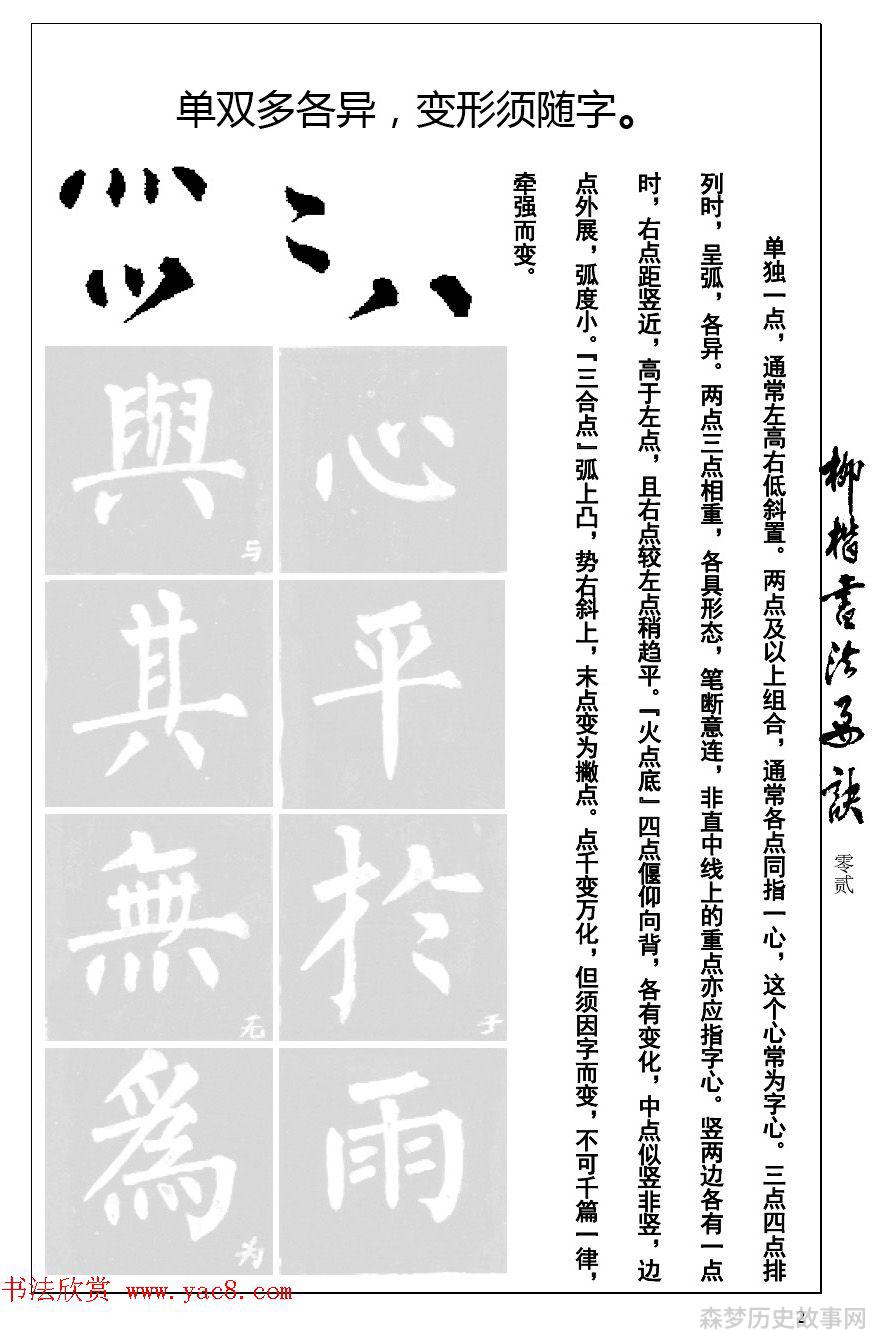 单双多各异，变形须随字。
单独一点，通常左高右低斜置。两点及以上组合，通常各点同指一心，这个心常为字心。三点四点排
列时，呈弧，各异。两点三点相重，各具形态，笔断意连，非直中线上的重点亦应指字心。竖两边各有一点
时，右点距竖近，高于左点，且右点较左点稍趋平。『火点底』四点偃仰向背，各有变化，中点似竖非竖，边
点外展，弧度小。『三合点』弧上凸，势右斜上，末点变为撇点。点千变万化，但须因字而变，不可千篇一律，
牵强而变。
柳楷书法要诀
零贰
心
平
於
于
雨
與
与
其
無
无
為
为
书法欣赏 www.yac8.com
2
森梦历史故事网